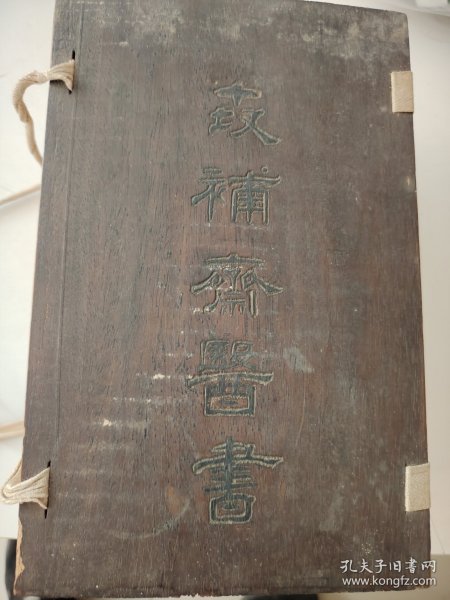 補齋醫書
孔夫子旧书网
www.kongfz.com